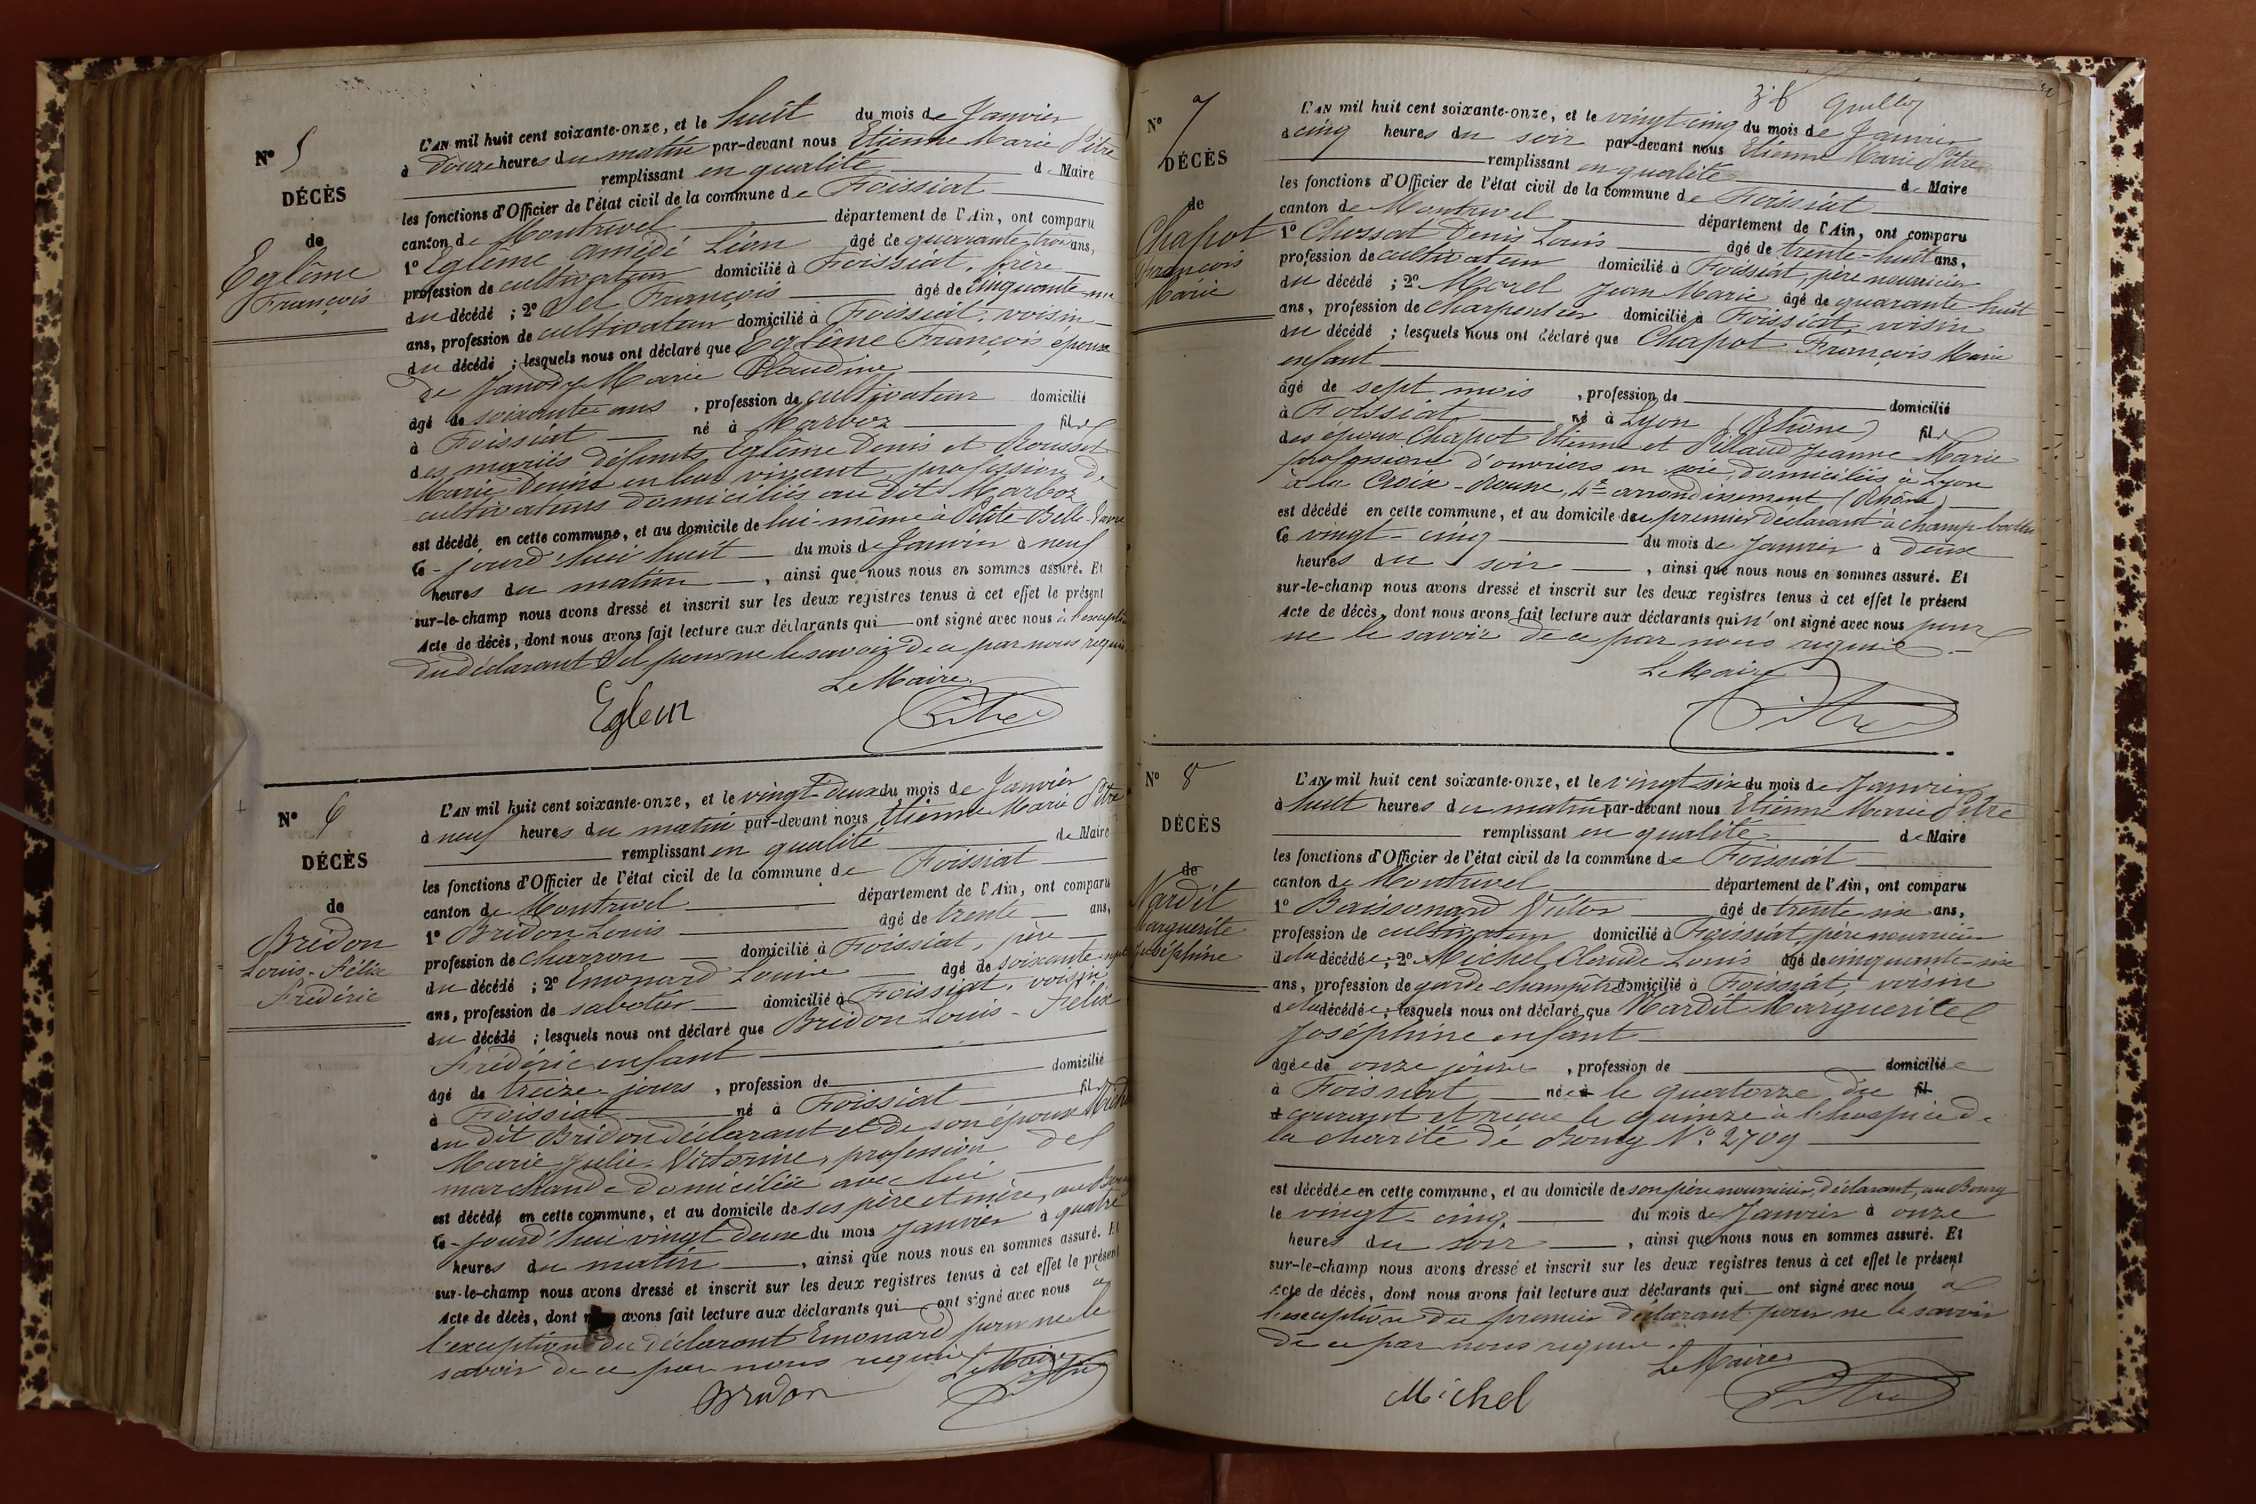 N° 5
DÉCÈS
de
Eglème
François
L'AN mil huit cent soixante-onze, et le huit du mois de Janvier
à douze heures du matin par-devant nous Etienne Marie Pitre
remplissant en qualité de Maire
les fonctions d'Officier de l'état civil de la commune de Foissiat
canton de Montrevel département de l'Ain, ont comparu
1° Eglème Amédé Léon âgé de quarante-trois ans,
profession de cultivateur domicilié à Foissiat, frère
du décédé ; 2° Sel François âgé de cinquante-un
ans, profession de cultivateur domicilié à Foissiat, voisin
du décédé ; lesquels nous ont déclaré que Eglème François époux
de Janody Marie Claudine
âgé de soixante ans, profession de cultivateur domicilié
à Foissiat né à Marboz fils
des mariés défunts Eglème Denis et Rousset
Marie Denise en leur vivant profession de
cultivateurs domiciliés au dit Marboz
est décédé en cette commune, et au domicile de lui-même à Petite Belle-Vavre
ce-jourd'hui huit du mois de Janvier à neuf
heures du matin, ainsi que nous nous en sommes assuré. Et
sur-le-champ nous avons dressé et inscrit sur les deux registres tenus à cet effet le présent
Acte de décès, dont nous avons fait lecture aux déclarants qui ont signé avec nous à l'exception
du déclarant Sel pour ne le savoir de ce par nous requis
Le Maire
Eglem Pitre
N° 6
DÉCÈS
de
Bridon
Louis-Félix
Frédéric
L'AN mil huit cent soixante-onze, et le vingt-deux du mois de Janvier
à neuf heures du matin par-devant nous Etienne Marie Pitre
remplissant en qualité de Maire
les fonctions d'Officier de l'état civil de la commune de Foissiat
canton de Montrevel département de l'Ain, ont comparu
1° Bridon Louis âgé de trente ans,
profession de charron domicilié à Foissiat, père
du décédé ; 2° Emonard Louis âgé de soixante-sept
ans, profession de sabotier domicilié à Foissiat, voisin
du décédé ; lesquels nous ont déclaré que Bridon Louis-Félix
Frédéric enfant
âgé de treize jours, profession de domicilié
à Foissiat né à Foissiat fils
du dit Bridon déclarant et de son épouse
Marie Julie Victorine, profession de
marchande domiciliée avec lui
est décédé en cette commune, et au domicile de ses père et mère, au Bourg
ce-jourd'hui vingt deux du mois Janvier à quatre
heures du matin, ainsi que nous nous en sommes assuré. Et
sur-le-champ nous avons dressé et inscrit sur les deux registres tenus à cet effet le présent
Acte de décès, dont avons fait lecture aux déclarants qui ont signé avec nous à
l'exception du déclarant Emonard pour ne le
savoir de ce par nous requis
Le Maire
Bridon Pitre
N° 7
DÉCÈS
de
Chapot
François
Marie
L'AN mil huit cent soixante-onze, et le vingt-cinq du mois de Janvier
à cinq heures du soir par-devant nous Etienne Marie Pitre
remplissant en qualité de Maire
les fonctions d'Officier de l'état civil de la commune de Foissiat
canton de Montrevel département de l'Ain, ont comparu
1° Chossat Denis Louis âgé de trente-huit ans,
profession de cultivateur domicilié à Foissiat, père nourricier
du décédé ; 2° Morel Jean Marie âgé de quarante-huit
ans, profession de charpentier domicilié à Foissiat, voisin
du décédé ; lesquels nous ont déclaré que Chapot François Marie
enfant
âgé de sept mois, profession de domicilié
à Foissiat né à Lyon (Rhône) fils
des époux Chapot Etienne et Pillaud Jeanne Marie
profession d'ouvriers en soie, domiciliés à Lyon
à la Croix-Rousse, 4e arrondissement (Rhône)
est décédé en cette commune, et au domicile du premier déclarant à
Ce vingt-cinq du mois de Janvier à deux
heures du soir, ainsi que nous nous en sommes assuré. Et
sur-le-champ nous avons dressé et inscrit sur les deux registres tenus à cet effet le présent
Acte de décès, dont nous avons fait lecture aux déclarants qui n'ont signé avec nous pour
ne le savoir de ce par nous requis
Le Maire
Pitre
N° 8
DÉCÈS
de
Nardit
Marguerite
Joséphine
L'AN mil huit cent soixante-onze, et le vingt-six du mois de Janvier
à huit heures du matin par-devant nous Etienne Marie Pitre
remplissant en qualité de Maire
les fonctions d'Officier de l'état civil de la commune de Foissiat
canton de Montrevel département de l'Ain, ont comparu
1° Baissonard Victor âgé de trente six ans,
profession de cultivateur domicilié à Foissiat, père nourricier
de la décédée ; 2° Michel Claude Louis âgé de cinquante-six
ans, profession de garde champêtre domicilié à Foissiat, voisin
de la décédée ; lesquels nous ont déclaré que Nardit Marguerite
Joséphine enfant
âgée de onze jours, profession de domiciliée
à Foissiat née le quatorze du
courant et reçue le quinze à l'hospice de
la charité de Bourg N° 2709
est décédée en cette commune, et au domicile de son père nourricier, déclarant, au Bourg
le vingt-cinq du mois de Janvier à onze
heures du soir, ainsi que nous nous en sommes assuré. Et
sur-le-champ nous avons dressé et inscrit sur les deux registres tenus à cet effet le présent
Acte de décès, dont nous avons fait lecture aux déclarants qui ont signé avec nous à
l'exception du premier déclarant pour ne le savoir
de ce par nous requis
Le Maire
Michel Pitre